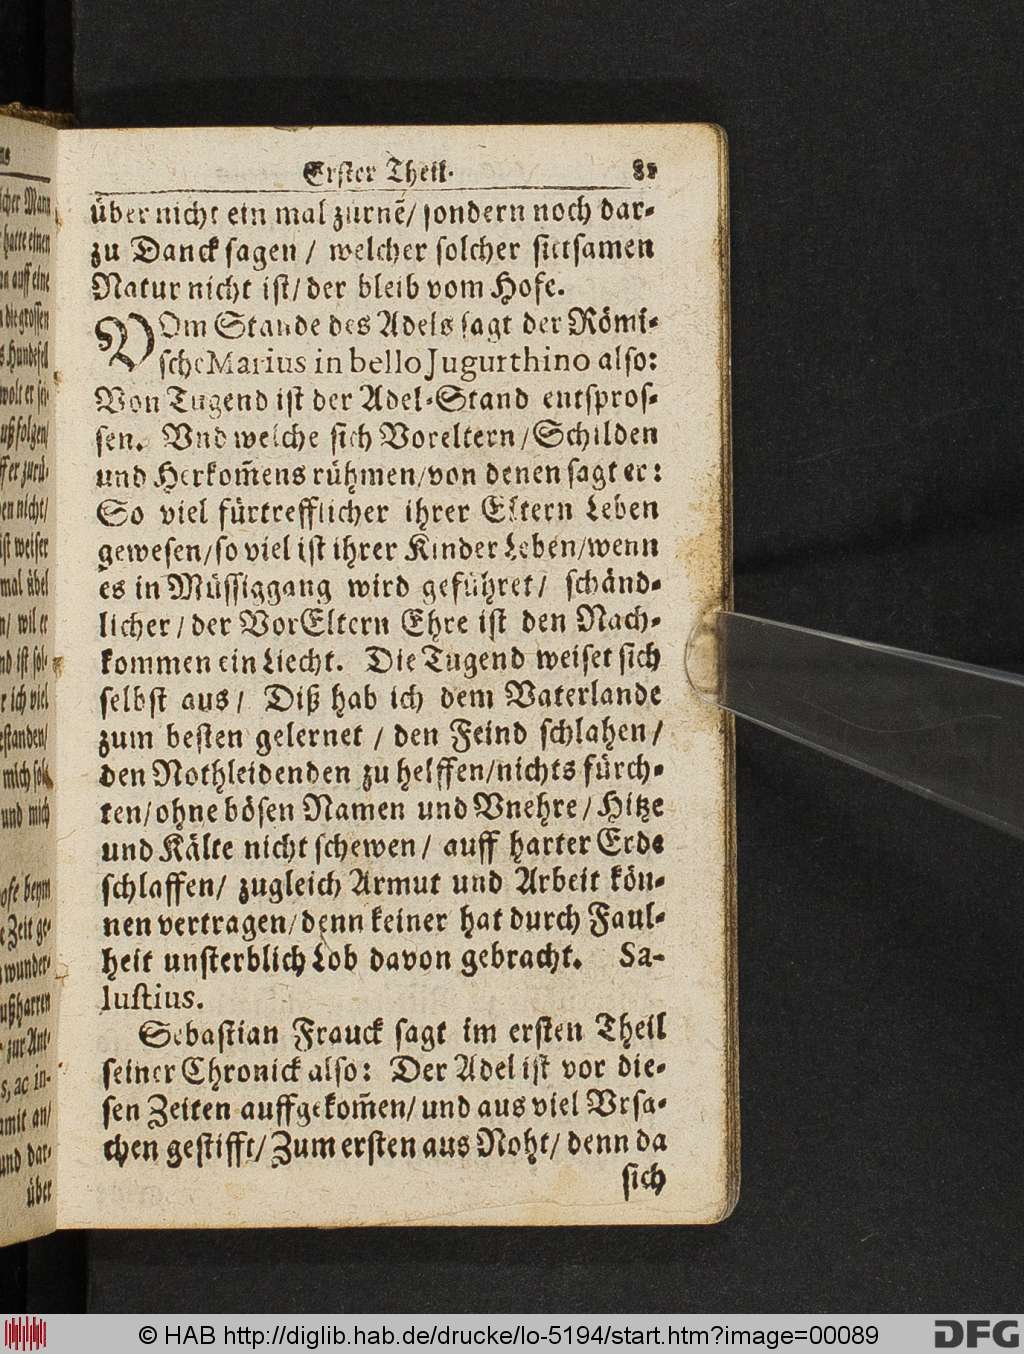 Erster Theil.
über nicht ein mal zürnē/ sondern noch dar-
zu Danck sagen / welcher solcher sittsamen
Natur nicht ist/ der bleib vom Hofe.
VOm Stande des Adels sagt der Römi-
sche Marius in bello Jugurthino also:
Von Tugend ist der Adel-Stand entspros-
sen. Vnd welche sich Voreltern/ Schilden
und Herkom̄ens rühmen/ von denen sagt er:
So viel fürtrefflicher ihrer Eltern Leben
gewesen/ so viel ist ihrer Kinder Leben/ wenn
es in Müssiggang wird geführet/ schänd-
licher/ der VorEltern Ehre ist den Nach-
kommen ein Liecht. Die Tugend weiset sich
selbst aus/ Diß hab ich dem Vaterlande
zum besten gelernet / den Feind schlahen/
den Nothleidenden zu helffen/ nichts fürch-
ten/ ohne bösen Namen und Vnehre/ Hitze
und Kälte nicht schewen/ auff harter Erde
schlaffen/ zugleich Armut und Arbeit kön-
nen vertragen/ denn keiner hat durch Faul-
heit unsterblich Lob davon gebracht. Sa-
lustius.
Sebastian Franck sagt im ersten Theil
seiner Chronick also: Der Adel ist vor die-
sen Zeiten auffgekom̄en/ und aus viel Vrsa-
chen gestifft/ Zum ersten aus Noht/ denn da
sich
© HAB http://diglib.hab.de/drucke/lo-5194/start.htm?image=00089
DFG